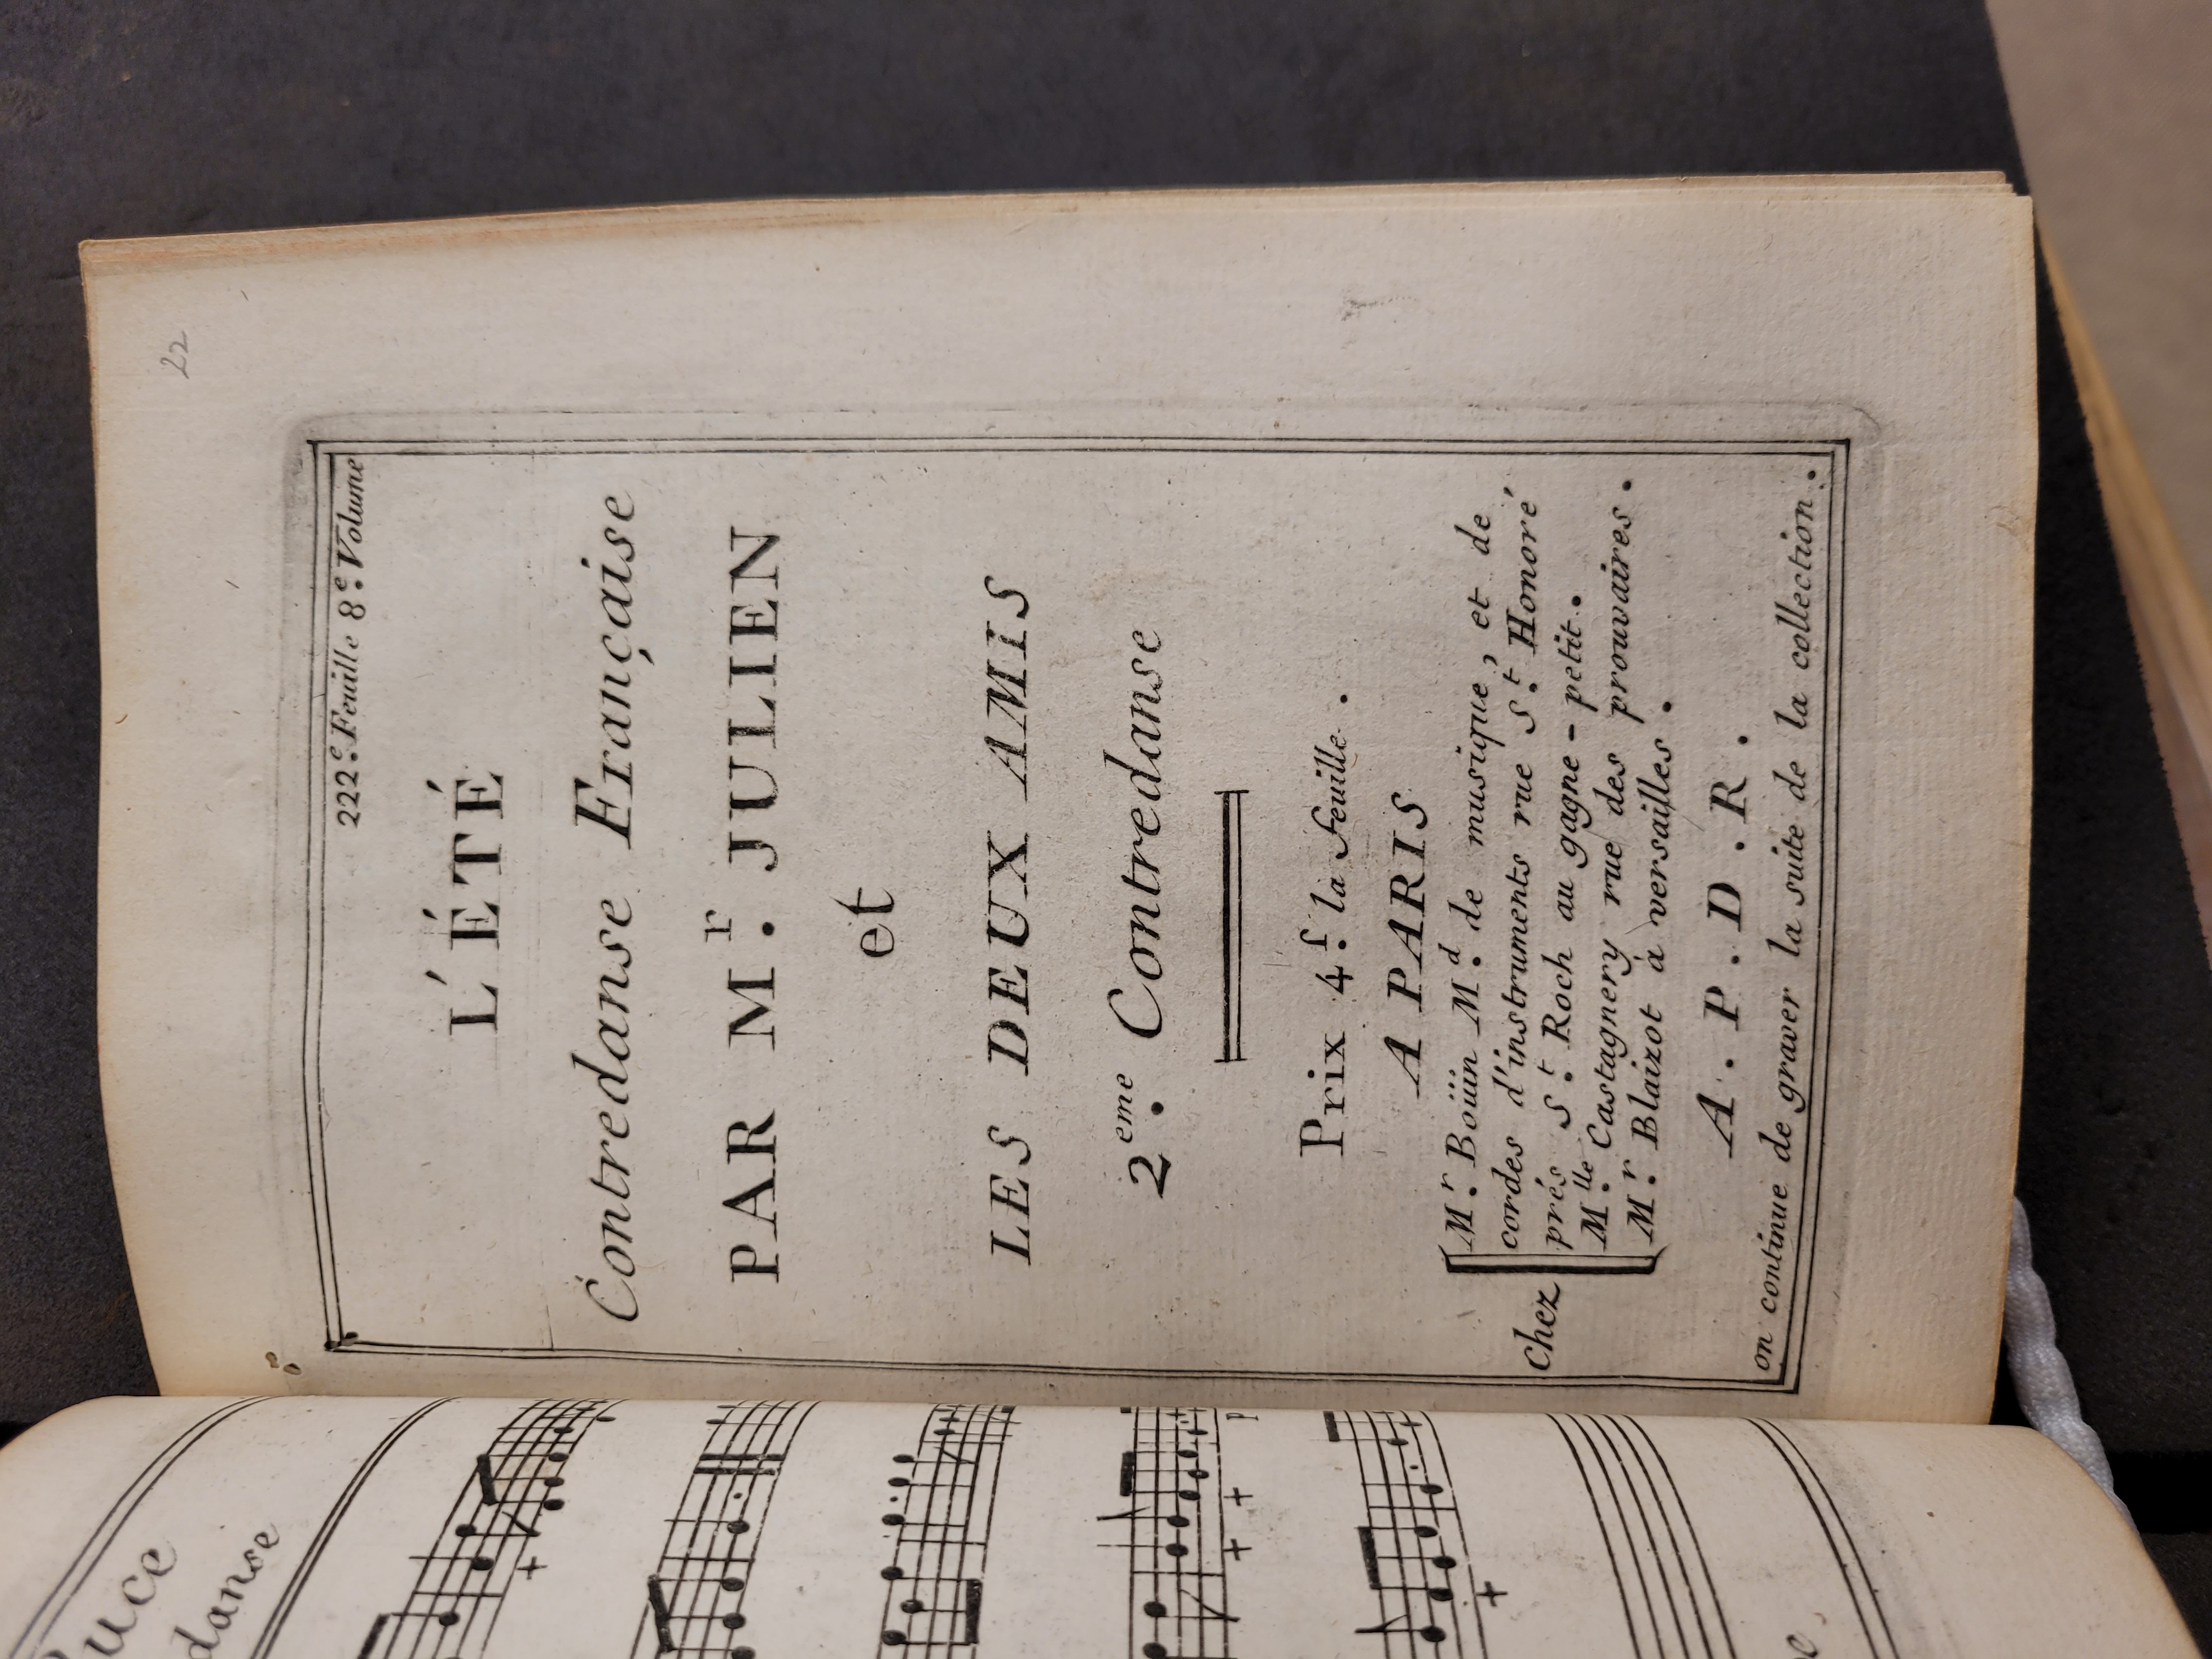 22
222.e Feuille 8.e Volume
L'ÉTÉ
Contredanse Française
PAR M.r JULIEN
et
LES DEUX AMIS
2.eme Contredanse
Prix 4.f la feuille.
A PARIS
Chez
M.r Boüin M.d de musique, et de
cordes d'instruments rue S.t Honoré
prés S.t Roch au gagne-petit.
M.lle Castagnery rue des prouvaires.
M.r Blaizot à versailles.
A. P. D. R.
on continue de graver la suite de la collection.
uce
danse